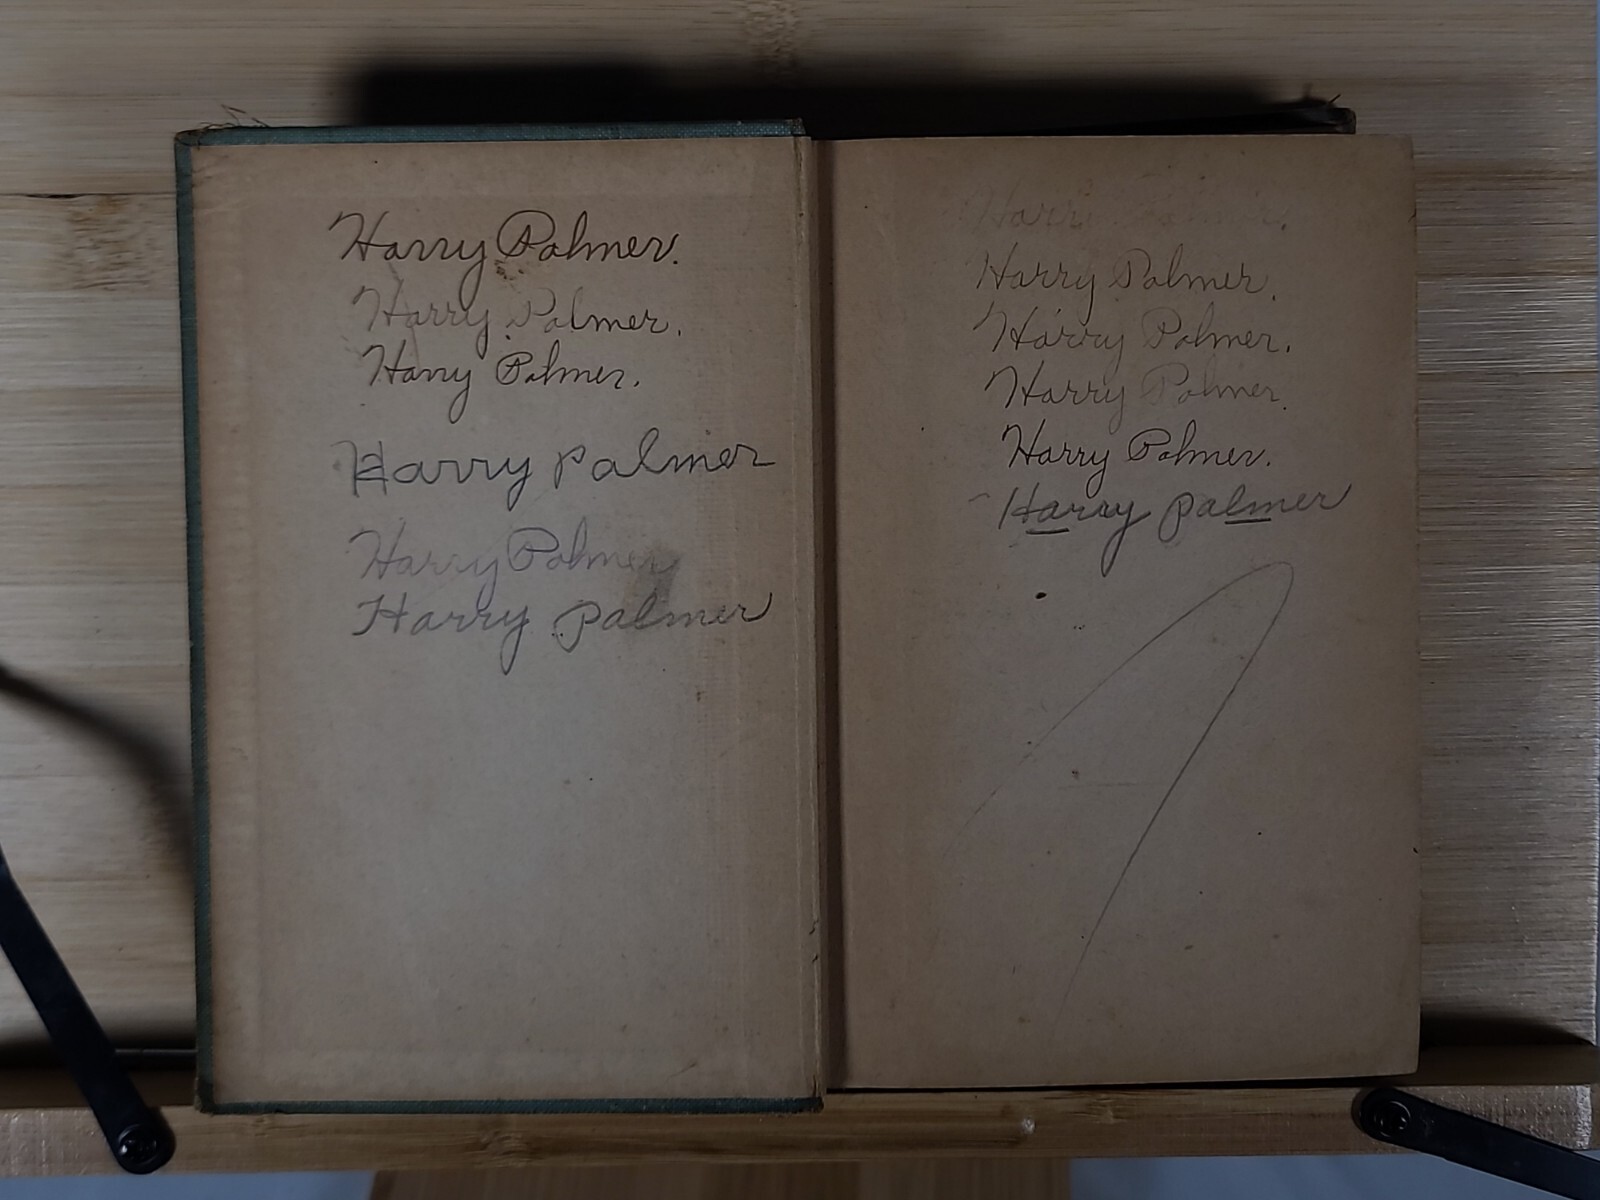 Harry Palmer.
Harry Palmer.
Harry Palmer.
Harry palmer
Harry Palmer
Harry palmer
Harry Palmer.
Harry Palmer.
Harry Palmer.
Harry Palmer.
Harry Palmer.
Harry palmer